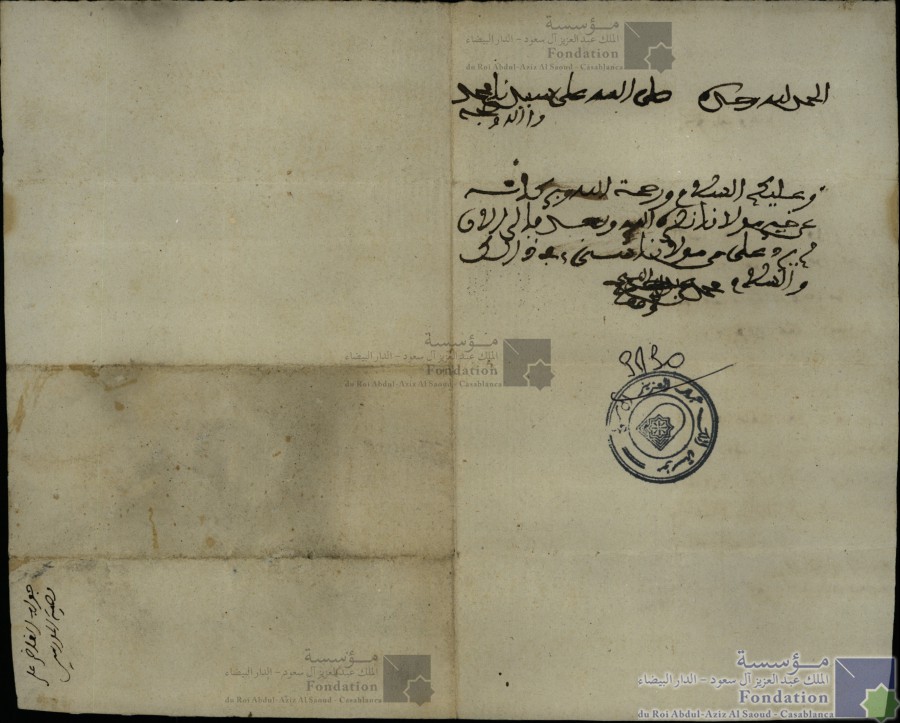 الحمد لله وحده صلى الله على سيدنا محمد
وآله وصحبه
وعليكم السلام ورحمة الله وبركاته
عن خير مولانا نصره الله وبعد فإلى الآن
لم يرد علي من مولانا في ذلك
والسلام محمد
مؤسسة
الملك عبد العزيز آل سعود - الدار البيضاء
Fondation
du Roi Abdul-Aziz Al Saoud - Casablanca
مؤسسة
الملك عبد العزيز آل سعود - الدار البيضاء
Fondation
du Roi Abdul-Aziz Al Saoud - Casablanca
مؤسسة الملك عبد العزيز آل سعود
جواب القاضي على
قضية
مؤسسة
الملك عبد العزيز آل سعود - الدار البيضاء
Fondation
du Roi Abdul-Aziz Al Saoud - Casablanca
مؤسسة
الملك عبد العزيز آل سعود - الدار البيضاء
Fondation
du Roi Abdul-Aziz Al Saoud - Casablanca